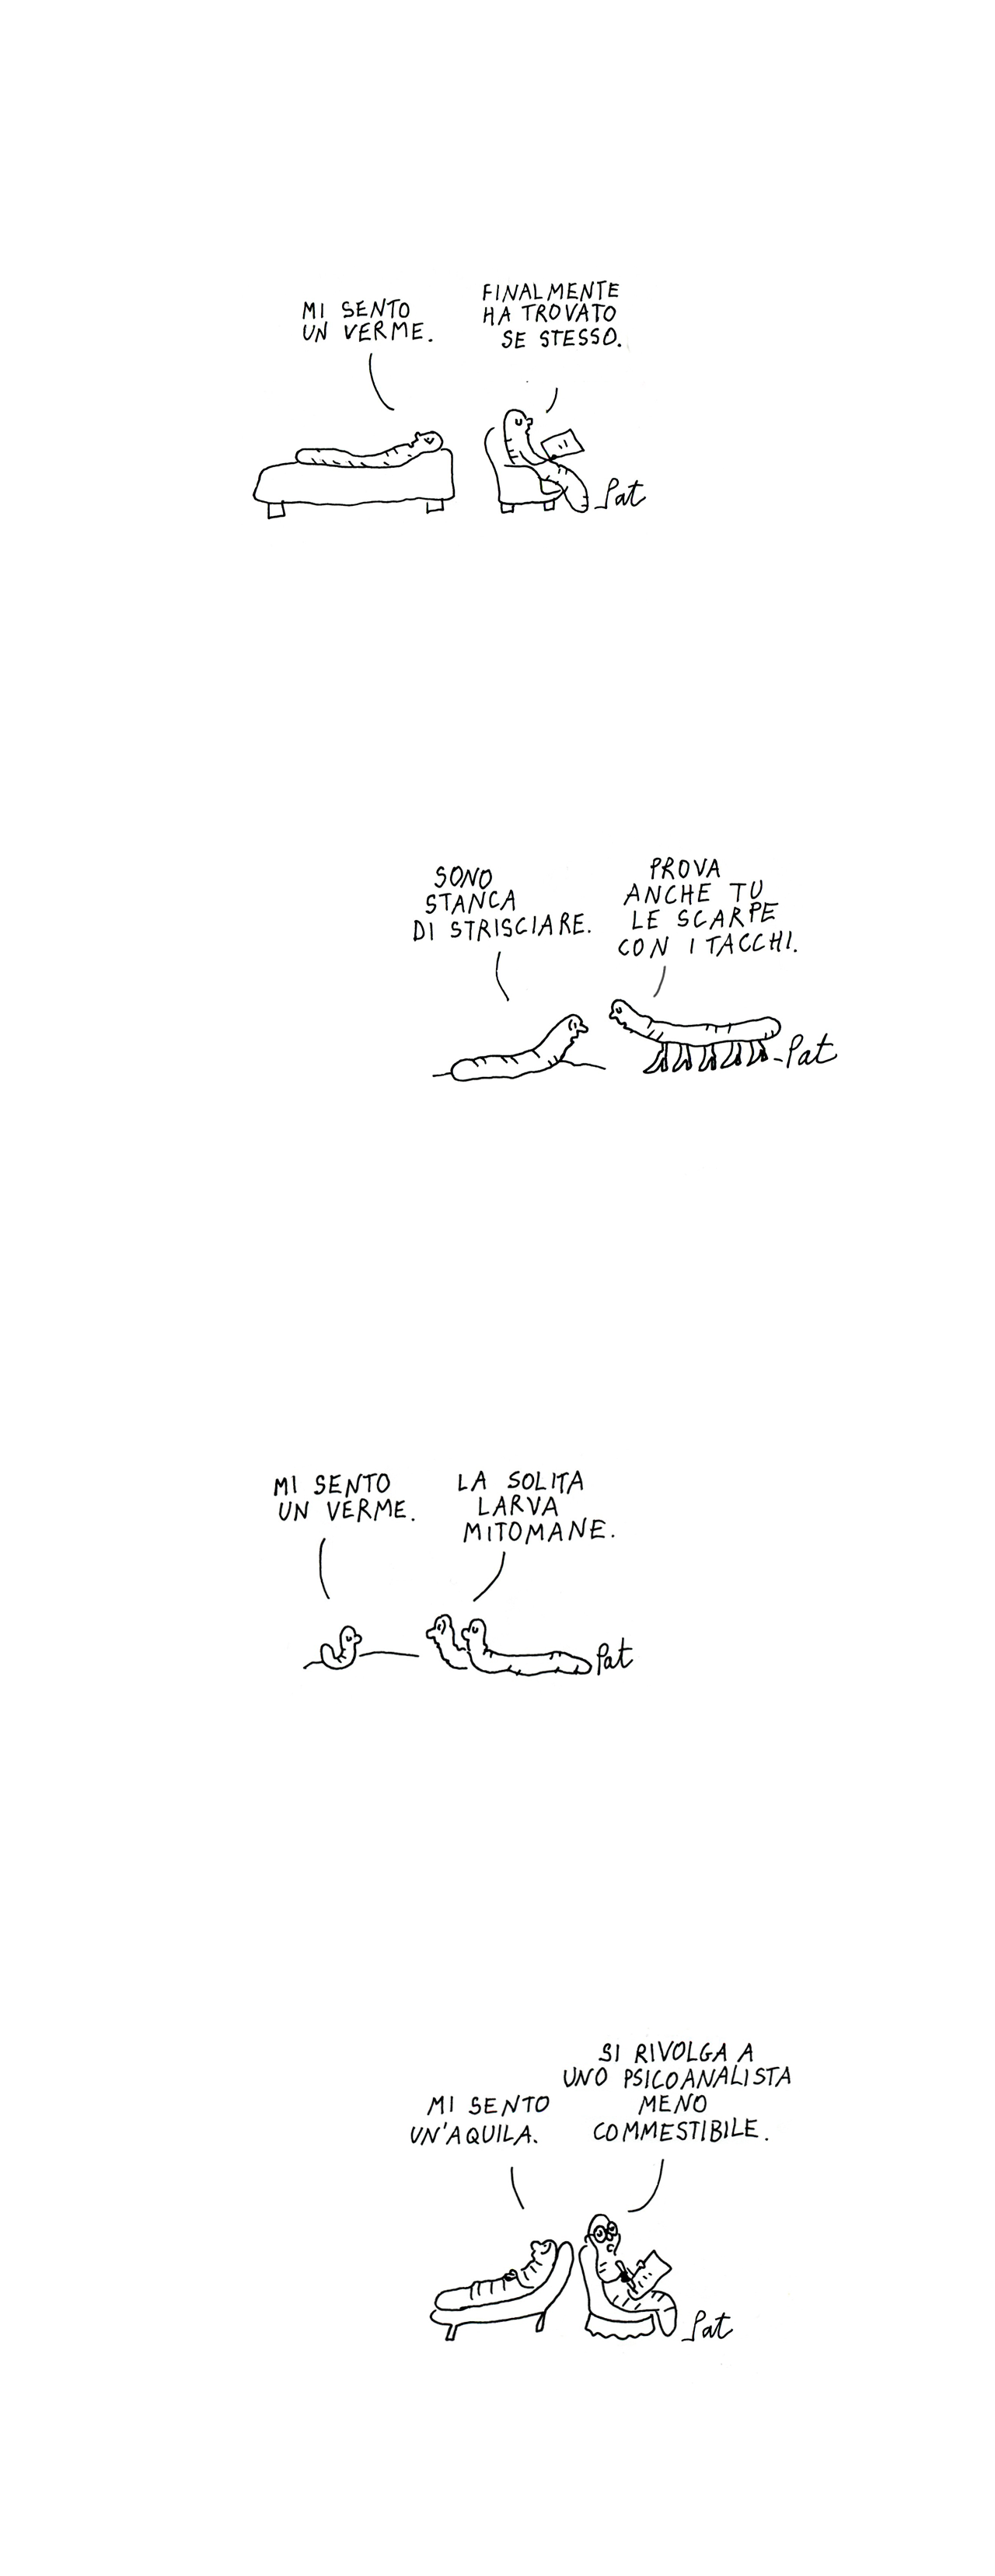 MI SENTO
UN VERME.
FINALMENTE
HA TROVATO
SE STESSO.
Pat
SONO
STANCA
DI STRISCIARE.
PROVA
ANCHE TU
LE SCARPE
CON I TACCHI.
Pat
MI SENTO
UN VERME.
LA SOLITA
LARVA
MITOMANE.
Pat
MI SENTO
UN'AQUILA.
SI RIVOLGA A
UNO PSICOANALISTA
MENO
COMMESTIBILE.
Pat